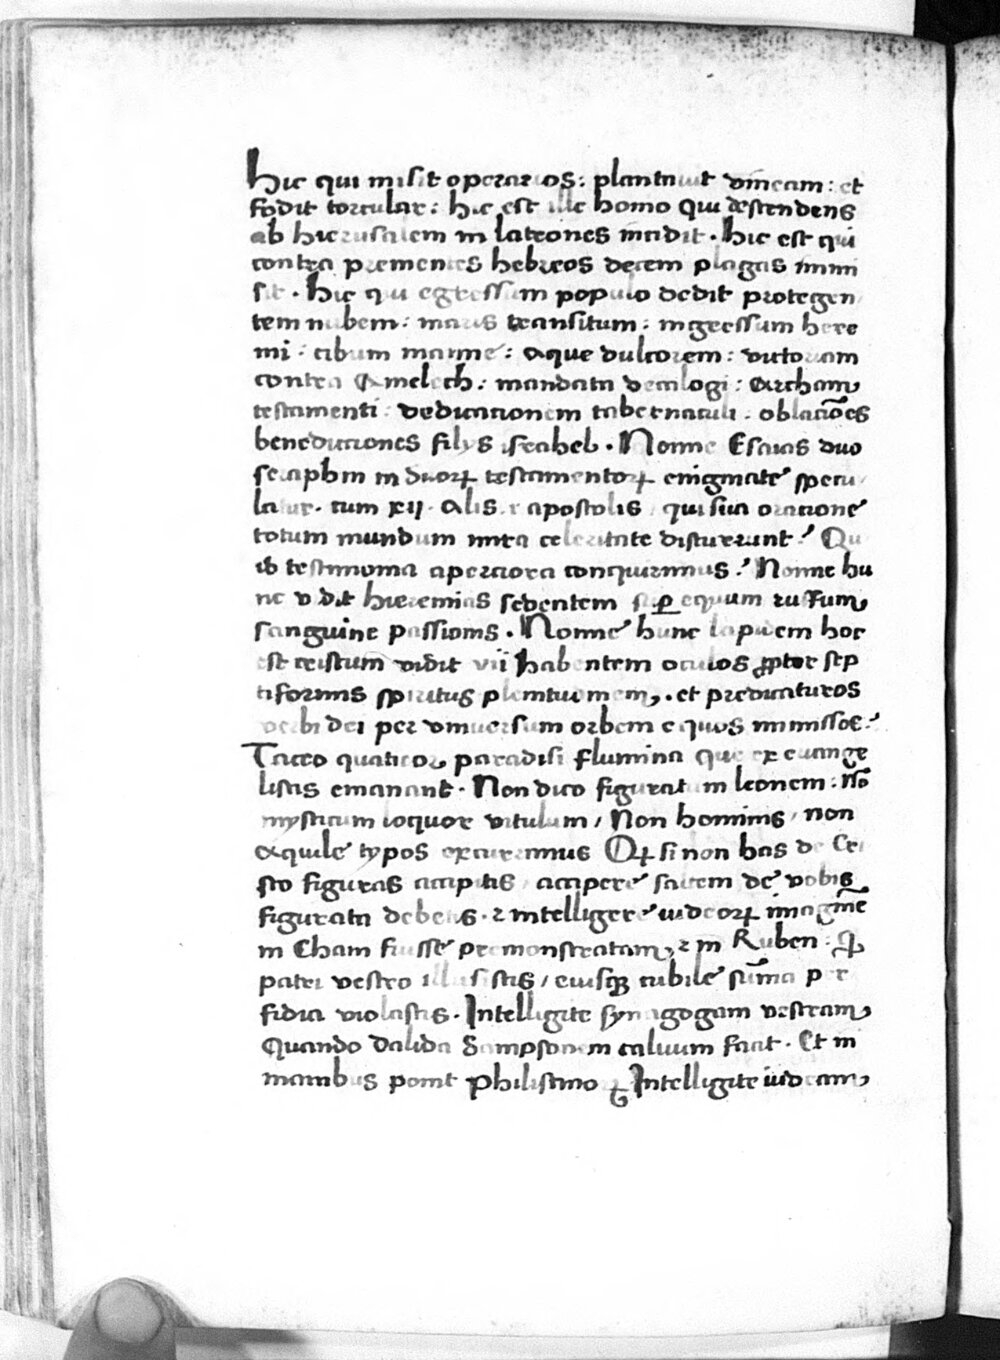 Hic qui misit operarios: plantauit vineam: et
fodit torcular: hic est ille homo qui descendens
ab hierusalem in latrones incidit. hic est qui
contra prementes hebreos decem plagas immi
sit. Hic qui egressum populo dedit protegen
tem nubem: maris transitum: ingressum here
mi: cibum manne: aque dulcorem: victoriam
contra Amelech: mandata decalogi: Archam
testamenti: dedicationem tabernaculi: oblatiões
benedictiones filiis israhel. Nonne Esaias duo
seraphin in duoꝝ testamentoꝝ enigmate specu
latur. cum xij. Alis. ⁊ apostolis, qui sua oratione
totum mundum mira celeritate discurrunt? Qu
ib testimonia aperciora conquirimus? Nonne hu
nc vidit hieremias sedentem suꝑ equum ruffum
sanguine passionis. Nonne hunc lapidem hoc
est cristum vidit vii habentem oculos ꝓpter sep
tiformis spiritus plenitudinem. et predicaturos
verbi dei per vniuersum orbem equos inmissos?
Taceo quatuor paradisi flumina que ex euange
listis emanant. Non dico figuratum leonem: nõ
mysticum loquor vitulum / Non hominis / non
aquile typos excurrimus Qꝫ si non has de Cri
sto figuras accipitis, accipere saltem de vobis
figurata debetis. ⁊ intelligere iudeoꝝ imaginẽ
in Cham fuisse premonstratam, ⁊ in Ruben: ꝙ
patri vestro illusistis / eiusqꝫ cubile sũma per
fidia violastis. Intelligite synagogam vestram
Quando dalida Sampsonem caluum facit. Et in
manibus ponit Philistino ꝝ Intelligite iudeam